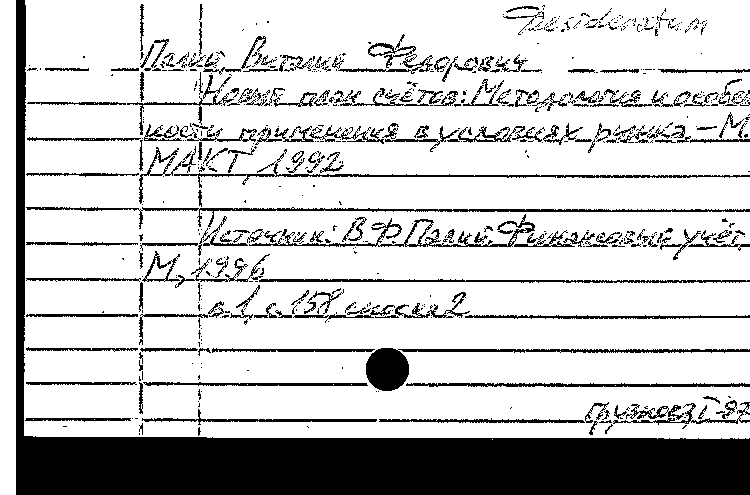 Desideratum
Палий, Виталий Федорович
Новый план счётов: Методология и особен
ности применения в условиях рынка. – М.
МАКТ, 1992
Источник: В.Ф. Палий. Финансовый учёт.
М., 1996
в. 1, с. 158, сноска 2
I-97